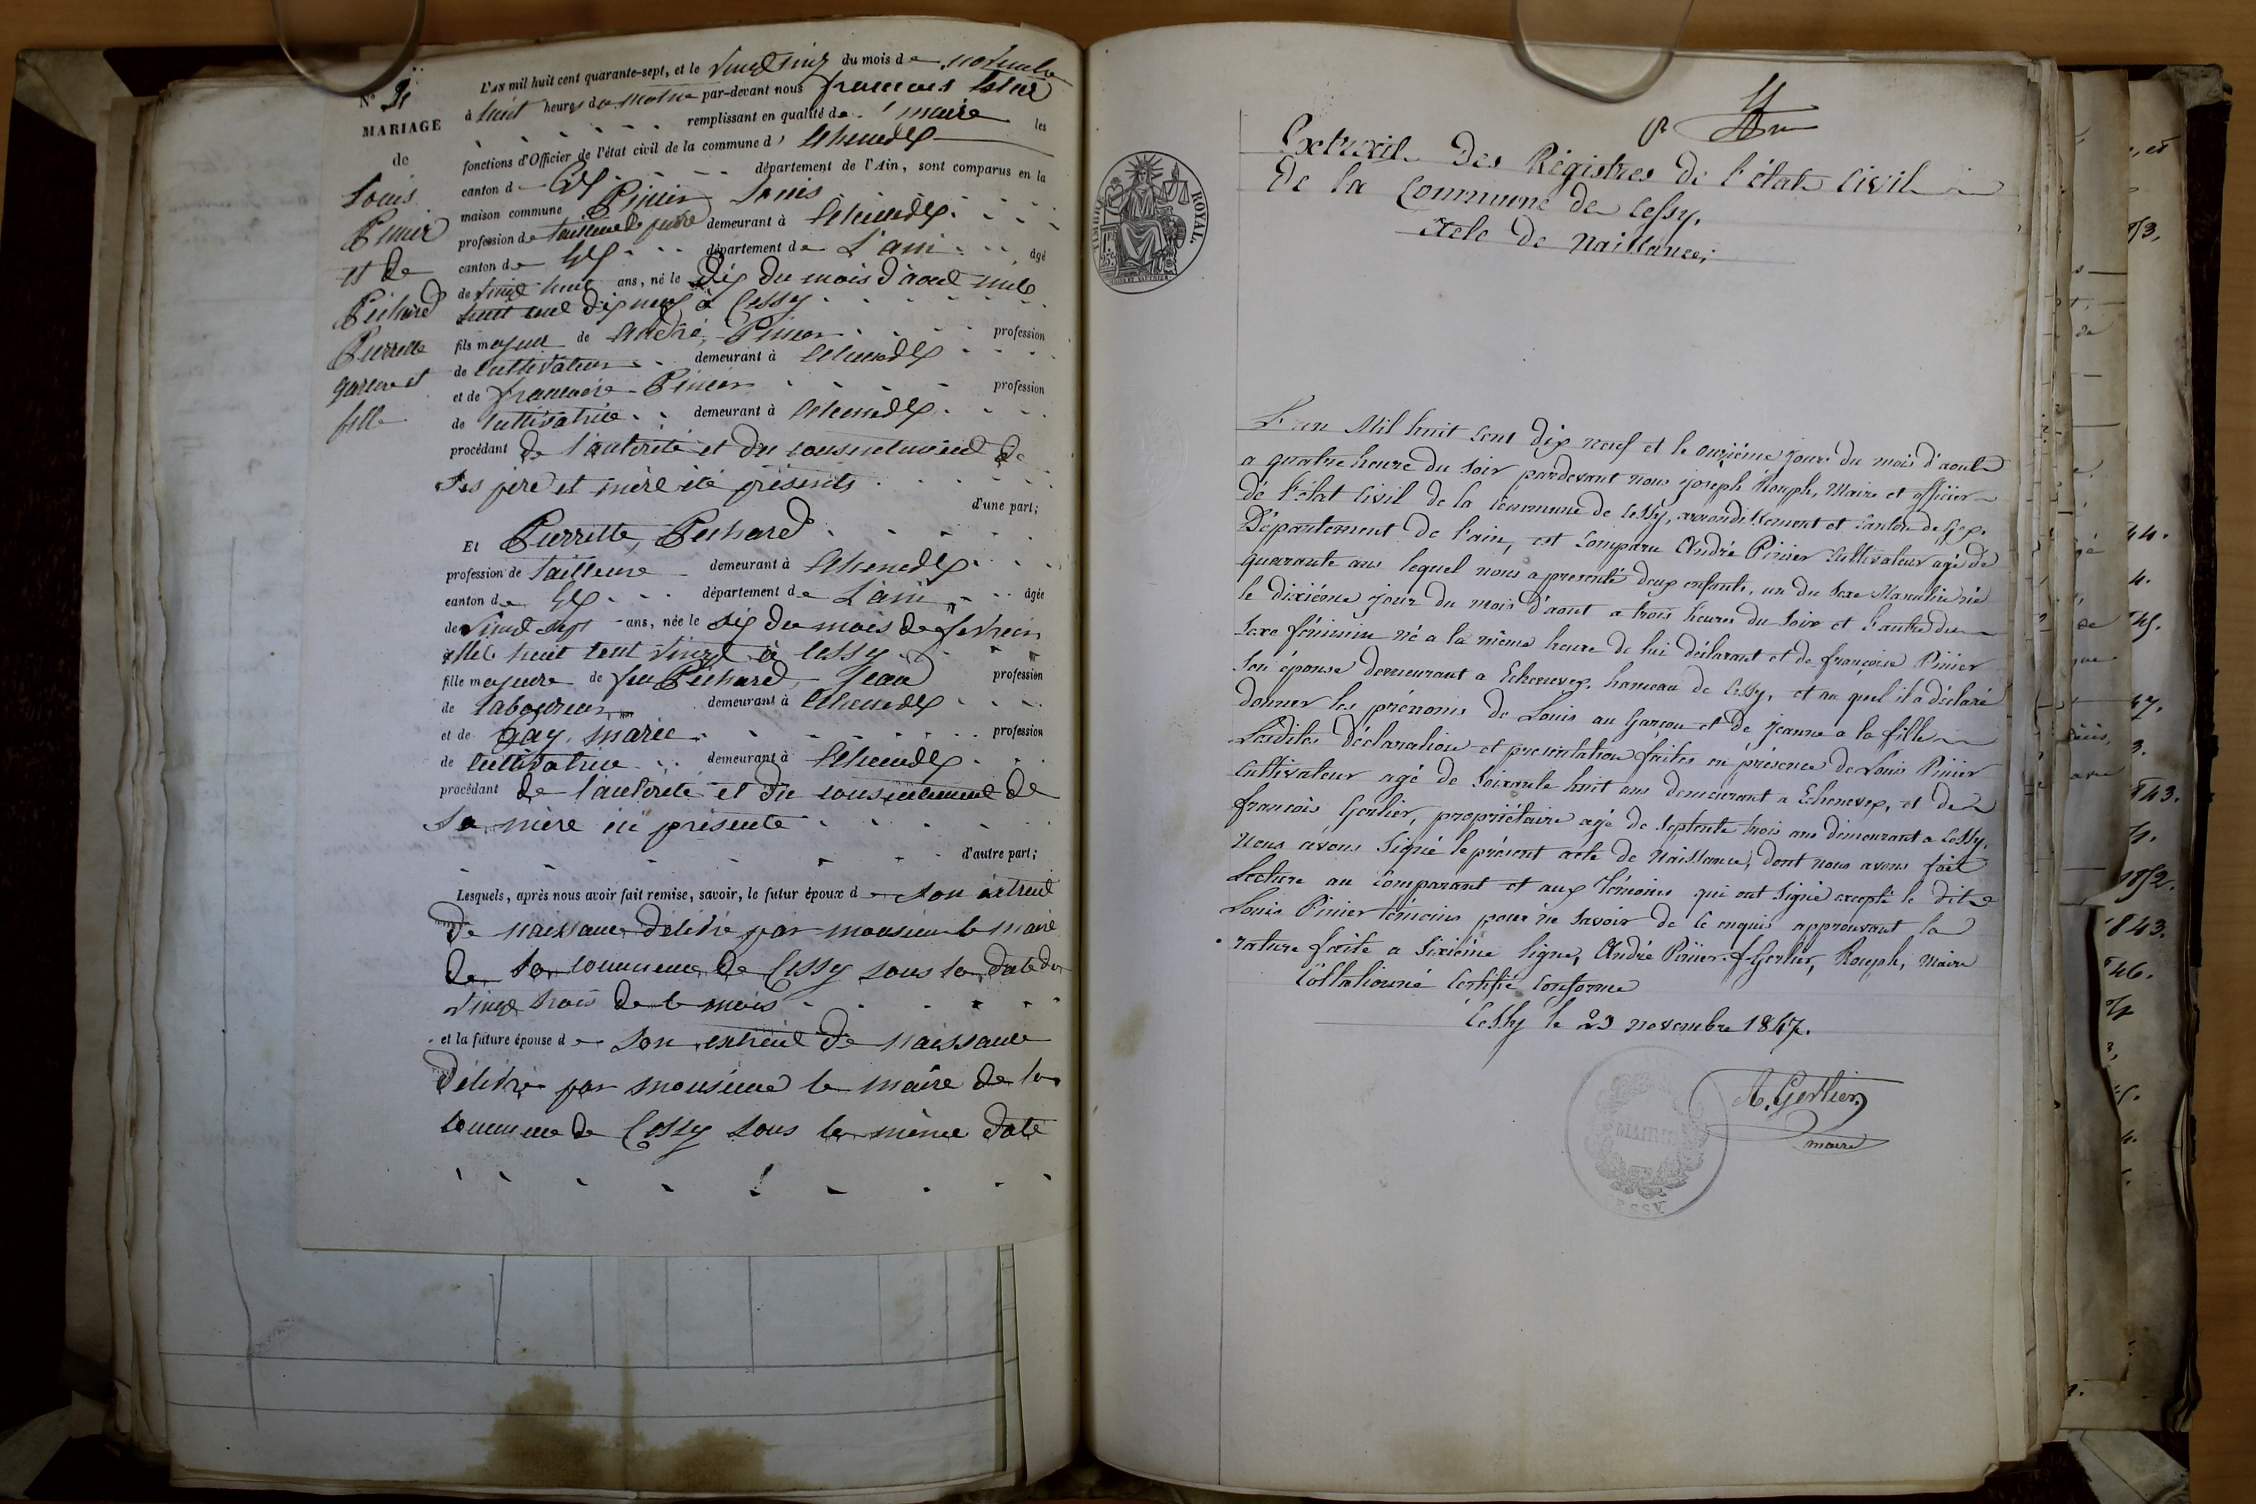 N° 3
MARIAGE
de
Louis
Pinier
et de
Pechard
Pierrette
garçon et
fille
L'AN mil huit cent quarante-sept, et le vingt cinq du mois de novembre
à huit heures du matin par-devant nous françois
remplissant en qualité de maire les
fonctions d'Officier de l'état civil de la commune d' Echenevex
canton de Gex département de l'Ain, sont comparus en la
maison commune Pinier Louis
profession de tailleur de pierre demeurant à Echenevex
canton de Gex département de L'ain âgé
de vingt huit ans, né le dix du mois d'aout mile
huit cent dix neuf à Cessy
fils majeur de André Pinier profession
de cultivateur demeurant à Echenevex
et de francoise Pinier profession
de cultivatrice demeurant à Echenevex
procédant de l'autorité et du consentement de
ses père et mère ici présents
d'une part;
Et Pierrette Pechard
profession de tailleuse demeurant à Echenevex
canton de Gex département de L'ain âgée
de vingt sept ans, née le six du mois de fevrier
mile huit cent vingt à Cessy
fille majeure de feu Pechard Jean profession
de laboureur demeurant à Echenevex
et de Gay, marie profession
de cultivatrice demeurant à Echenevex
procédant de l'autorité et du consentement de
sa mère ici présente
d'autre part;
Lesquels, après nous avoir fait remise, savoir, le futur époux de son extrait
de naissance délivré par monsieur le maire
de la commune de Cessy sous la date du
vingt trois de ce mois
et la future épouse de son extrait de naissance
délivré par monsieur le maire de la
commune de Cessy sous la même date
TIMBRE ROYAL.
Extrait des Régistres de l'état Civil
de la Commune de Cessy.
Acte de Naissance;
L'an Mil huit cent dix neuf et le onzième jour du mois d'aout
a quatre heure du soir pardevant nous joseph Rouph, Maire et officier
de l'état Civil de la Commune de Cessy, arrondissement et Canton de Gex,
Département de l'ain, est Comparu André Pinier Cultivateur agé de
quarante ans lequel nous a presenté deux enfants, un du Sexe Masculin né
le dixième jour du mois d'aout a trois heures du Soir et l'autre du
Sexe féminin né a la même heure de lui déclarant et de françoise Pinier
Son épouse demeurant a Echenevex hameau de Cessy, et au quel il a déclaré
donner les prénoms de Louis au Garçon et de Jeanne a la fille
Lesdites déclaration et presentation faites en présence de Louis Pinier
Cultivateur agé de Soixante huit ans demeurant a Echenevex, et de
françois Gerlier, propriétaire agé de Septente trois ans demeurant a Cessy.
Nous avons Signé le présent acte de Naissance, dont nous avons fait
Lecture au Comparant et aux témoins qui ont Signé excepté le dit
Louis Pinier témoins pour ne Savoir de ce enquis approuvant la
rature faite a Sixième ligne, André Pinier. f. Gerlier, Rouph, Maire
Collationné Certifié Conforme
Cessy le 23 novembre 1847.
A. Gerlier
maire
MAIRIE
CESSY